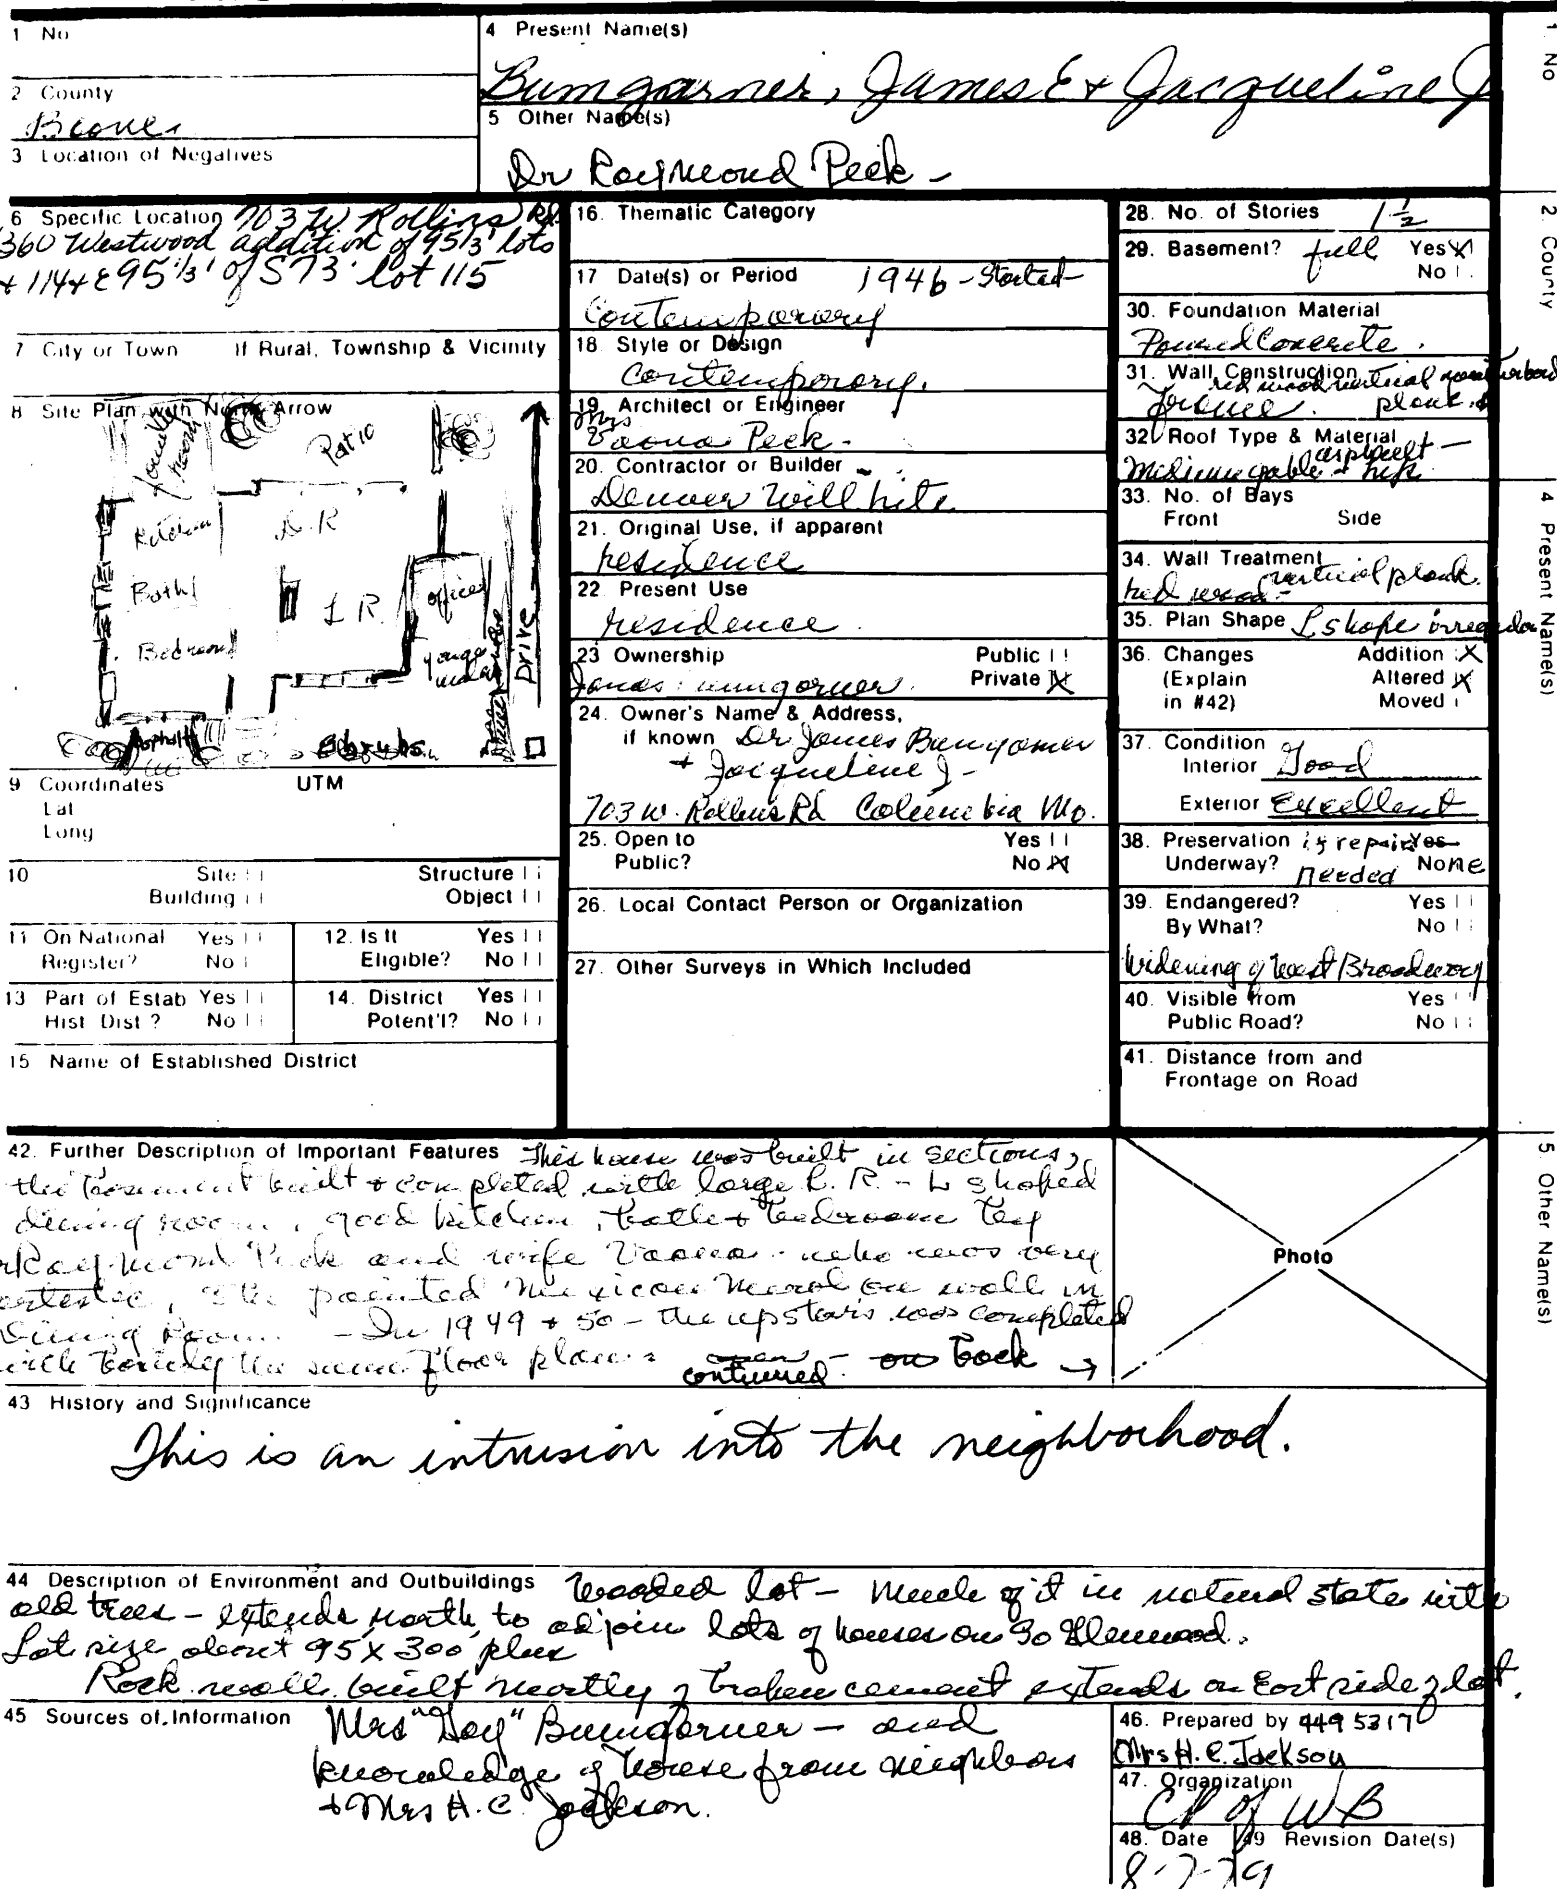 1 No
2 County
Boone
3 Location of Negatives
4 Present Name(s)
Bumgarner, James E + Jacqueline J
5 Other Name(s)
Dr Raymond Peck -
6 Specific Location 703 W Rollins Rd.
360 Westwood addition of 95 1/3' lots
+ 114 + E 95 1/3' of S 73' lot 115
7 City or Town If Rural, Township & Vicinity
8 Site Plan with North Arrow
Patio
Kitchen
D.R
Bath
L R.
office
Bedroom
Drive
Asphalt
Shrubs
9 Coordinates UTM
Lat
Long
10 Site Structure
Building Object
11 On National Register? Yes No
12. Is It Eligible? Yes No
13 Part of Estab Hist Dist? Yes No
14. District Potent'l? Yes No
15 Name of Established District
16. Thematic Category
17 Date(s) or Period 1946 - Started -
Contemporary
18 Style or Design
Contemporary.
19. Architect or Engineer
Mrs
Peck -
20. Contractor or Builder
Denver Willhite
21. Original Use, if apparent
residence
22. Present Use
residence
23 Ownership Public
Private X
24. Owner's Name & Address,
if known Dr James Bumgarner
+ Jacqueline J -
703 W. Rollins Rd Columbia Mo.
25. Open to Yes
Public? No X
26. Local Contact Person or Organization
27. Other Surveys in Which Included
28. No. of Stories 1 1/2
29. Basement? full Yes X
No
30. Foundation Material
Poured Concrete.
31. Wall Construction
red wood vertical
Frame. plank
32. Roof Type & Material
asphalt -
Medium gable + hip
33. No. of Bays
Front Side
34. Wall Treatment
red wood - vertical plank.
35. Plan Shape L shape irregular
36. Changes Addition X
(Explain Altered X
in #42) Moved
37. Condition
Interior Good
Exterior Excellent
38. Preservation if repair Yes
Underway? needed None
39. Endangered? Yes
By What? No
Widening of West Broadway
40. Visible from Yes
Public Road? No
41. Distance from and
Frontage on Road
42. Further Description of Important Features This house was built in sections,
the basement built + completed with large L. R. - L shaped
dining room, good kitchen, bath + bedroom by
Raymond Peck and wife - who was very
artistic, She painted Mexican Mural on wall in
Dining Room. - In 1949 + 50 - the upstairs was completed
with the same floor plan continued - on back →
Photo
43 History and Significance
This is an intrusion into the neighborhood.
44 Description of Environment and Outbuildings Wooded lot - Much of it in natural state with
old trees - extends north to adjoin lots of houses on So Glenwood.
Lot size about 95 X 300 plus
Rock wall built mostly of broken cement extends on East side of lot.
45 Sources of Information Mrs "Jay" Bumgarner - and
knowledge of house from neighbors
+ Mrs H. C. Jackson.
46. Prepared by 449 5317
Mrs H. C. Jackson
47. Organization
of WB
48. Date 49 Revision Date(s)
8-7-79
1 No
2. County
4 Present Name(s)
5 Other Name(s)